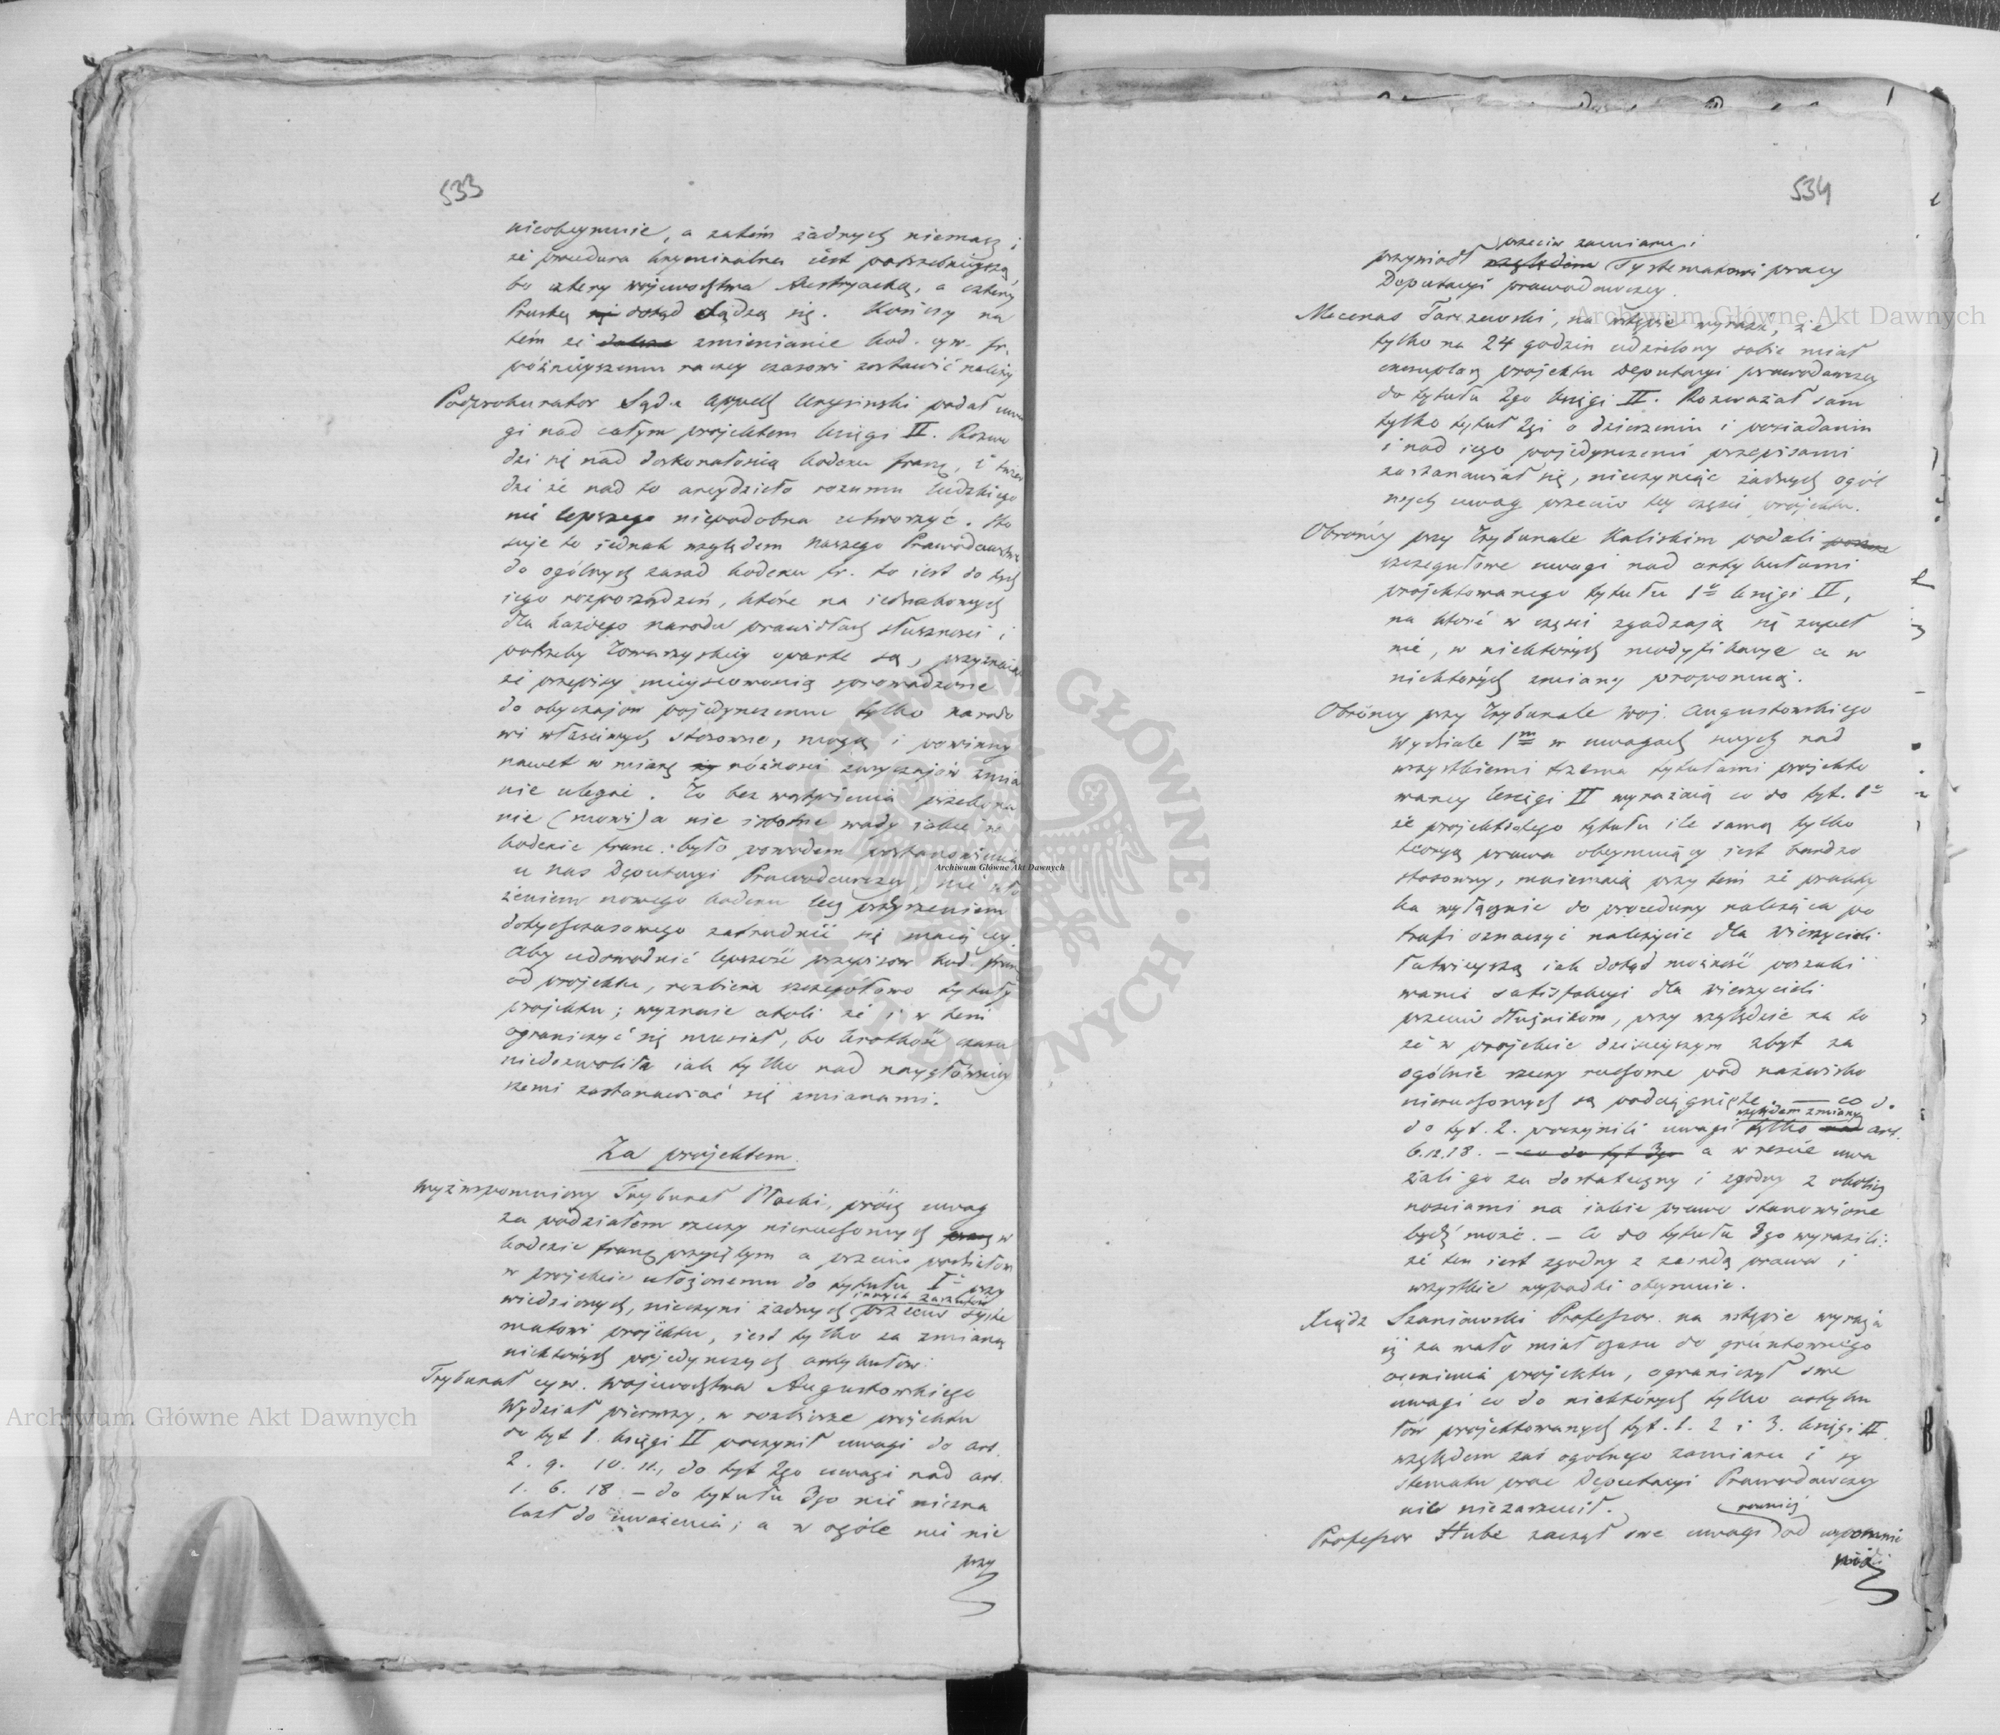 533
nieobeymuie, a zatém żadnych niemasz i
że procedura kryminalna iest potrzebnieyszą,
bo cztery województwa Austryacką, a cztery
Pruską się dotąd sądzą się. Kończy na
tém że zmienianie kod. cyw. fr.
późnieyszemu raczey czasowi zostawić należy
Podprokurator Sądu Appell. podał uwa
gi nad całym projektem księgi II. Rozwo
dzi się nad doskonałością kodexu franc, i twier
dzi że nad to arcydzieło rozumu ludzkiego
nic lepszego niepodobna utworzyć. Sto
suje to jednak względem naszego Prawodawstwa
do ogólnych zasad kodexu fr. to iest do tych
iego rozporządzeń, które na iednakowych
dla każdego narodu prawidłach słuszności i
potrzeby Towarzyskiey oparte są, przyznaiąc
że przepisy mieyscowością sprowadzone
do obyczajow pojedynczemu tylko narodo
wi właściwych stosowne, mogą i powinny
nawet w miarę różności zwyczajów zmia
nie ulegać. To bez wątpienia przekona
nie (mowi) a nie istotne wady iakie w
kodexie franc. było powodem postanowienia
u nas Deputacyi Prawodawczey, nie uło
żeniem nowego kodexu lecz przeyrzeniem
dotychczasowego zatrudnić się maiącey.
Aby udowodnić lepszość przepisow kod. franc
od projektu, rozbiera szczegółowo tytuły
projektu; wyznaie atoli że i w tem
ograniczyć się musiał, bo krótkość czasu
niedozwoliła iak tylko nad naygłówniey
szemi zastanawiać się zmianami.
Za projektem.
Wyżwspomniony Trybunał Płocki, prócz uwag
za podziałem rzeczy nieruchomych w
kodexie franc przyiętym a przeciw podziałowi
w projekcie ułożonemu do tytułu I° przy
innych zarzutów
wiedzionych, nieczyni żadnych przeciw syste
matowi projektu, iest tylko za zmianą
niektórych pojedynczych artykułów.
Trybunał cyw. Województwa Augustowskiego
Wydział pierwszy, w rozbiorze projektu
do tyt 1. księgi II poczynił uwagi do art.
2. 9. 10. 11., do tyt 2go uwagi nad art.
1. 6. 18 – do tytułu 3go nic niezna
lazł do uważenia; a w ogóle nic nie
przy
534
przeciw zamiarowi i
przyniósł względem Systematowi pracy
Deputacyi prawodawczey.
Mecenas Tarczewski, na wstępie wyraża, że
tylko na 24 godzin udzielony sobie miał
exemplarz projektu Deputacyi prawodawczey
do tytułu 2go księgi II. Rozważał sam
tylko tytuł 2gi o dzierżeniu i posiadaniu
i nad iego pojedynczemi przepisami
zastanawiał się, nieczyniąc żadnych ogól
nych uwag przeciw tey części projektu.
Obrońcy przy Trybunale Kaliskim podali
szczegułowe uwagi nad artykułami
projektowanego tytułu 1° księgi II,
na które w części zgadzają się zupeł
nie, w niektórych modyfikacye a w
niektórych zmiany proponuią.
Obrońcy przy Trybunale Woj. Augustowskiego
Wydziale 1m w uwagach swych nad
wszystkiemi trzema tytułami projekto
waney księgi II wyrażaią co do tyt. 1°
że projekt całego tytułu ile samą tylko
teoryą prawa obeymuiący iest bardzo
stosowny, mniemaią przytem że prakty
ka wyłącznie do procedury należąca po
trafi oznaczyć należycie dla wierzycieli
łatwieyszą iak dotąd możność poszuki
wania satisfakcyi dla wierzycieli
przeciw dłużnikom, przy względzie na to
że w projekcie dzisieyszym zbyt za
ogólnie rzeczy ruchome pod nazwisko
nieruchomych są podciągnięte — co d.
względem zmiany
do tyt. 2. poczynili uwagi tylko nad art.
6.12.18. – co do tyt 3go a w reszcie uwa
żali go za dostateczny i zgodny z okolicz
nościami na iakie prawo stanowione
być może. – Co do tytułu 3go wyrazili:
że ten iest zgodny z zasadą prawa i
wszystkie wypadki obeymuie.
Xiądz Szaniawski Professor. na wstępie wyraża
iż za mało miał czasu do gruntownego
ocenienia projektu, ograniczył swe
uwagi co do niektórych tylko artyku
łów projektowanych tyt. 1. 2 i 3. księgi II
względem zaś ogólnego zamiaru i sy
stematu prac Deputacyi Prawodawczey
nic niezarzucił.
rownież
Professor Hube zaczął swe uwagi od wspomnie